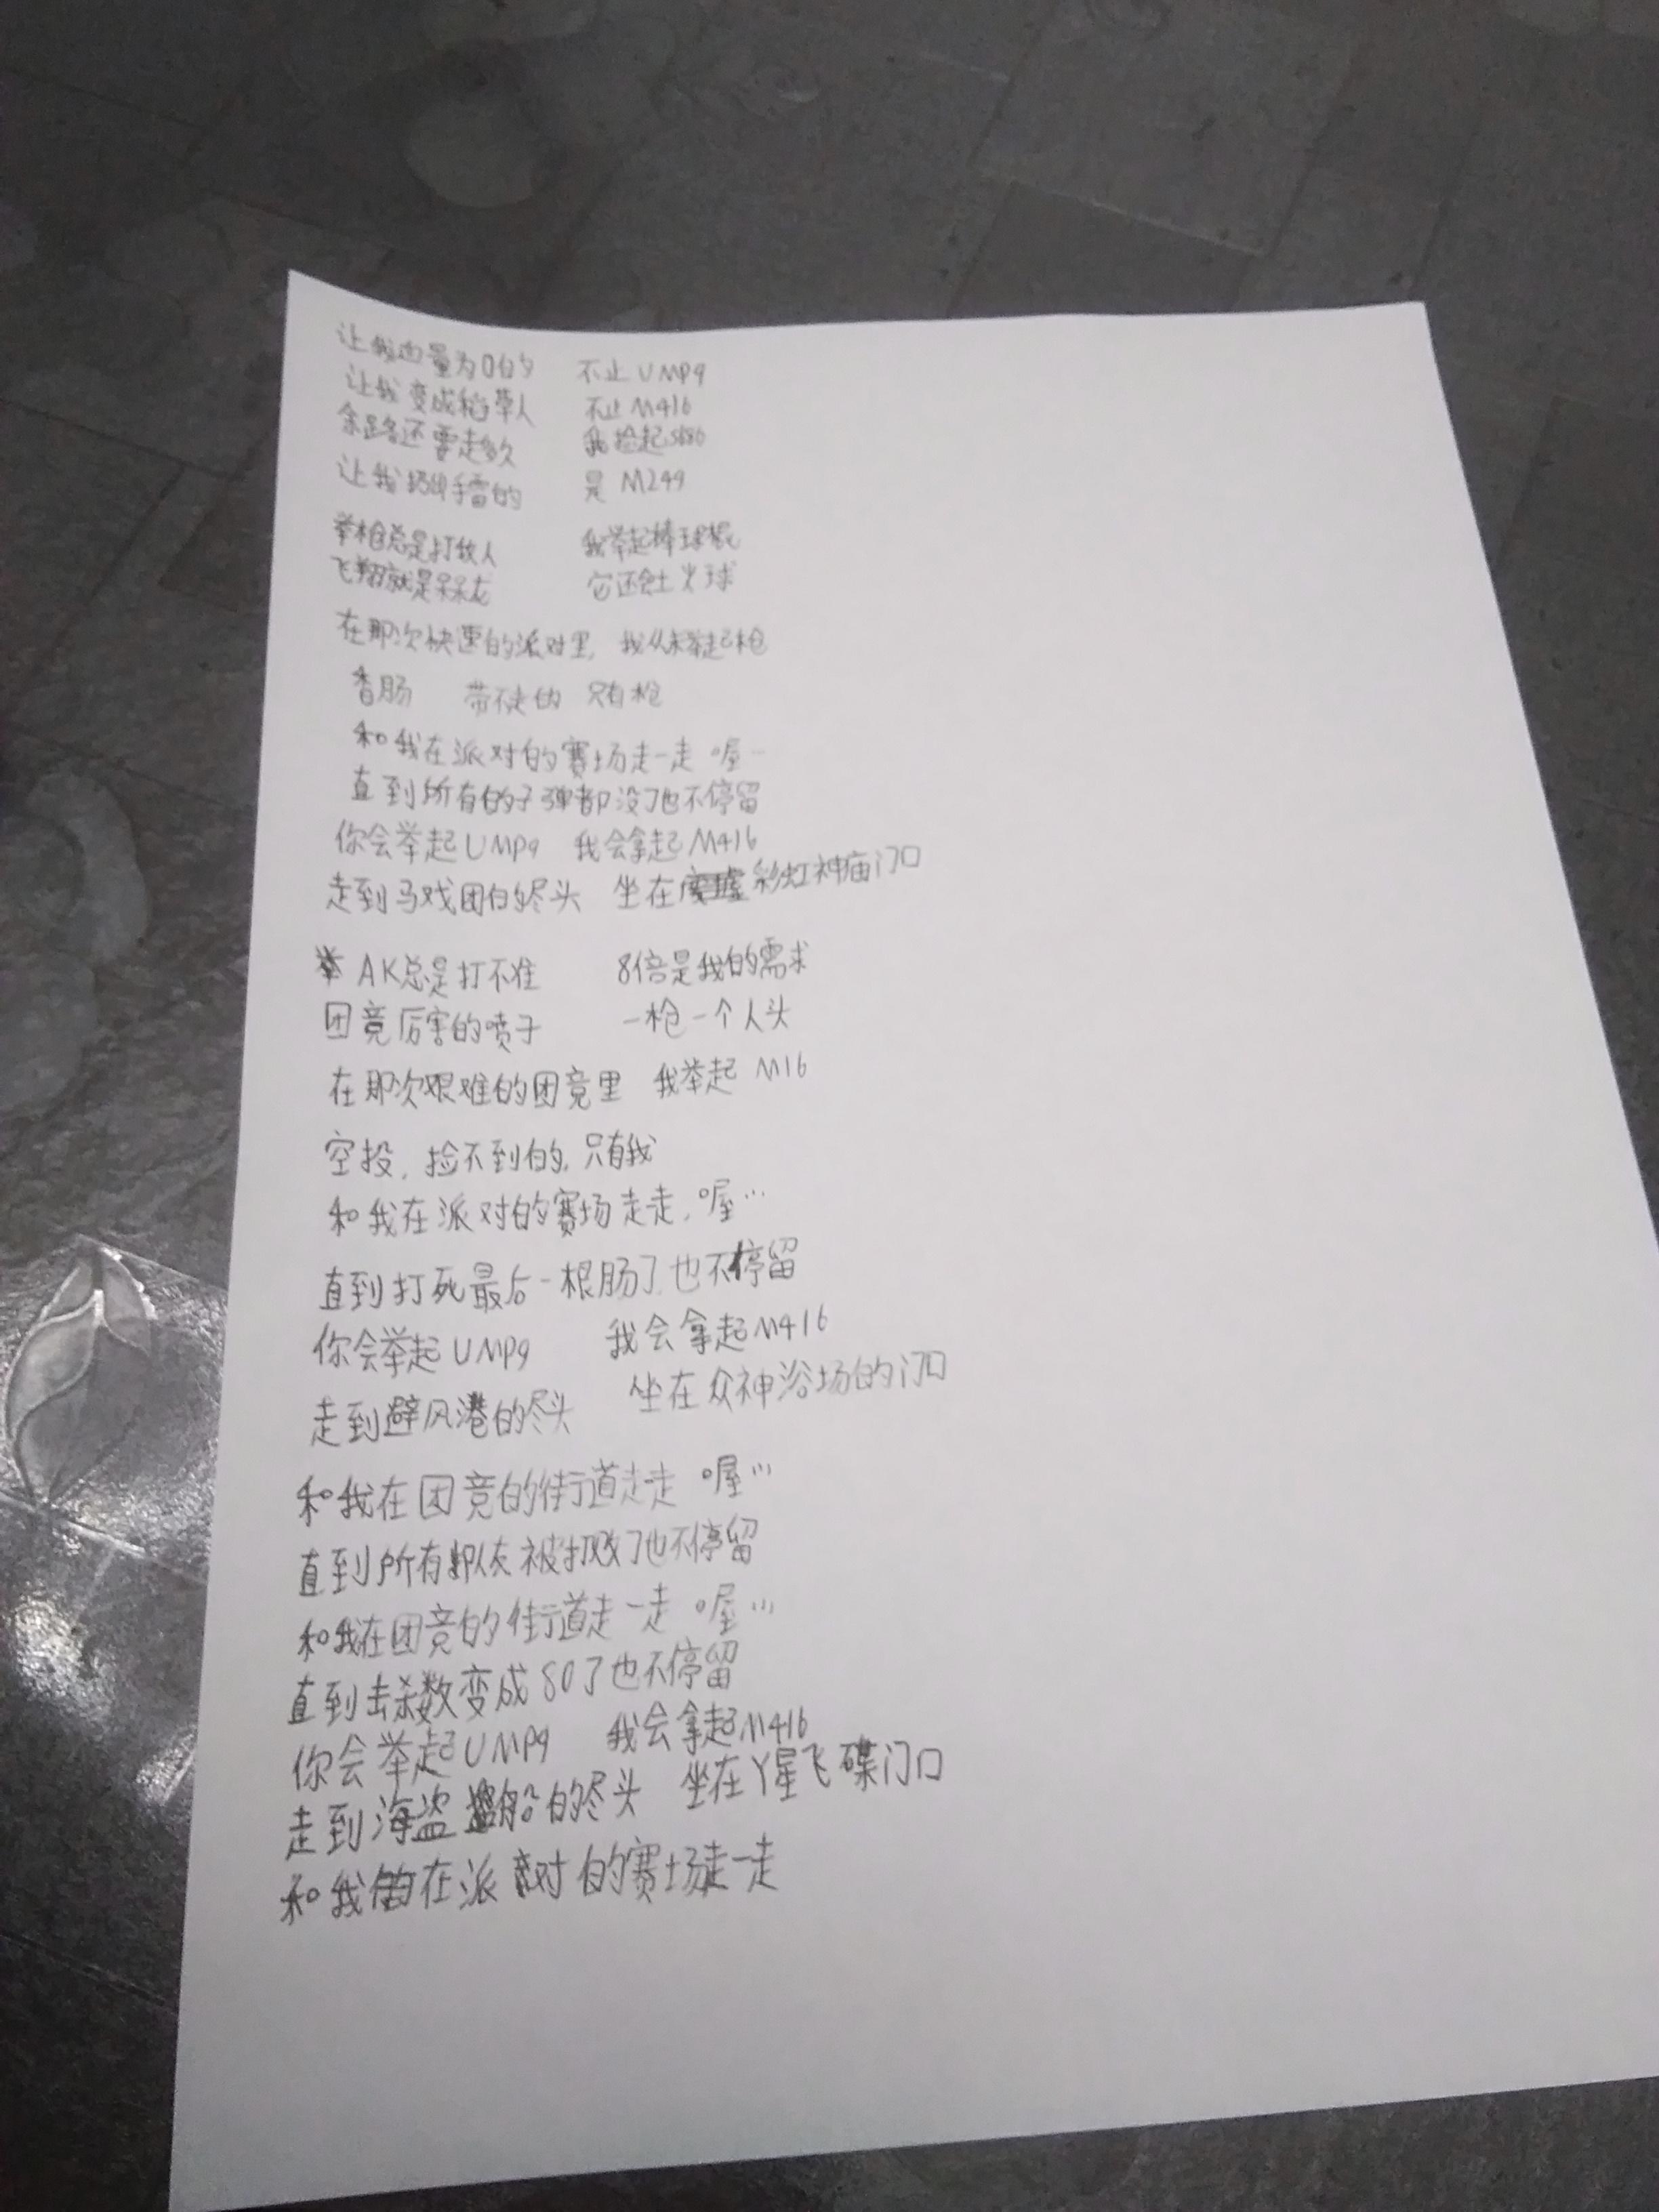 让我血量为0的 不止UMP9
让我变成稻草人 不止M416
余路还要走多久 我捡起S686
让我扔掉手雷的 是M249
举枪总是打敌人 我举起棒球棍
飞翔就是呆呆龙 它还会吐火球
在那次快速的派对里, 我从未举起枪
香肠 带不走的 只有枪
和我在派对的赛场走一走 喔…
直到所有的子弹都没了也不停留
你会举起UMP9 我会拿起M416
走到马戏团的尽头 坐在彩虹神庙门口
举AK总是打不准 8倍是我的需求
团竞厉害的喷子 一枪一个人头
在那次艰难的团竞里 我举起M16
空投, 捡不到的, 只有我
和我在派对的赛场走走, 喔…
直到打死最后一根肠了也不停留
你会举起UMP9 我会拿起M416
走到避风港的尽头 坐在众神浴场的门口
和我在团竞的街道走走 喔…
直到所有队友被打败了也不停留
和我在团竞的街道走一走 喔…
直到击杀数变成80了也不停留
你会举起UMP9 我会拿起M416
走到海盗船的尽头 坐在丫星飞碟门口
和我在派对的赛场走一走